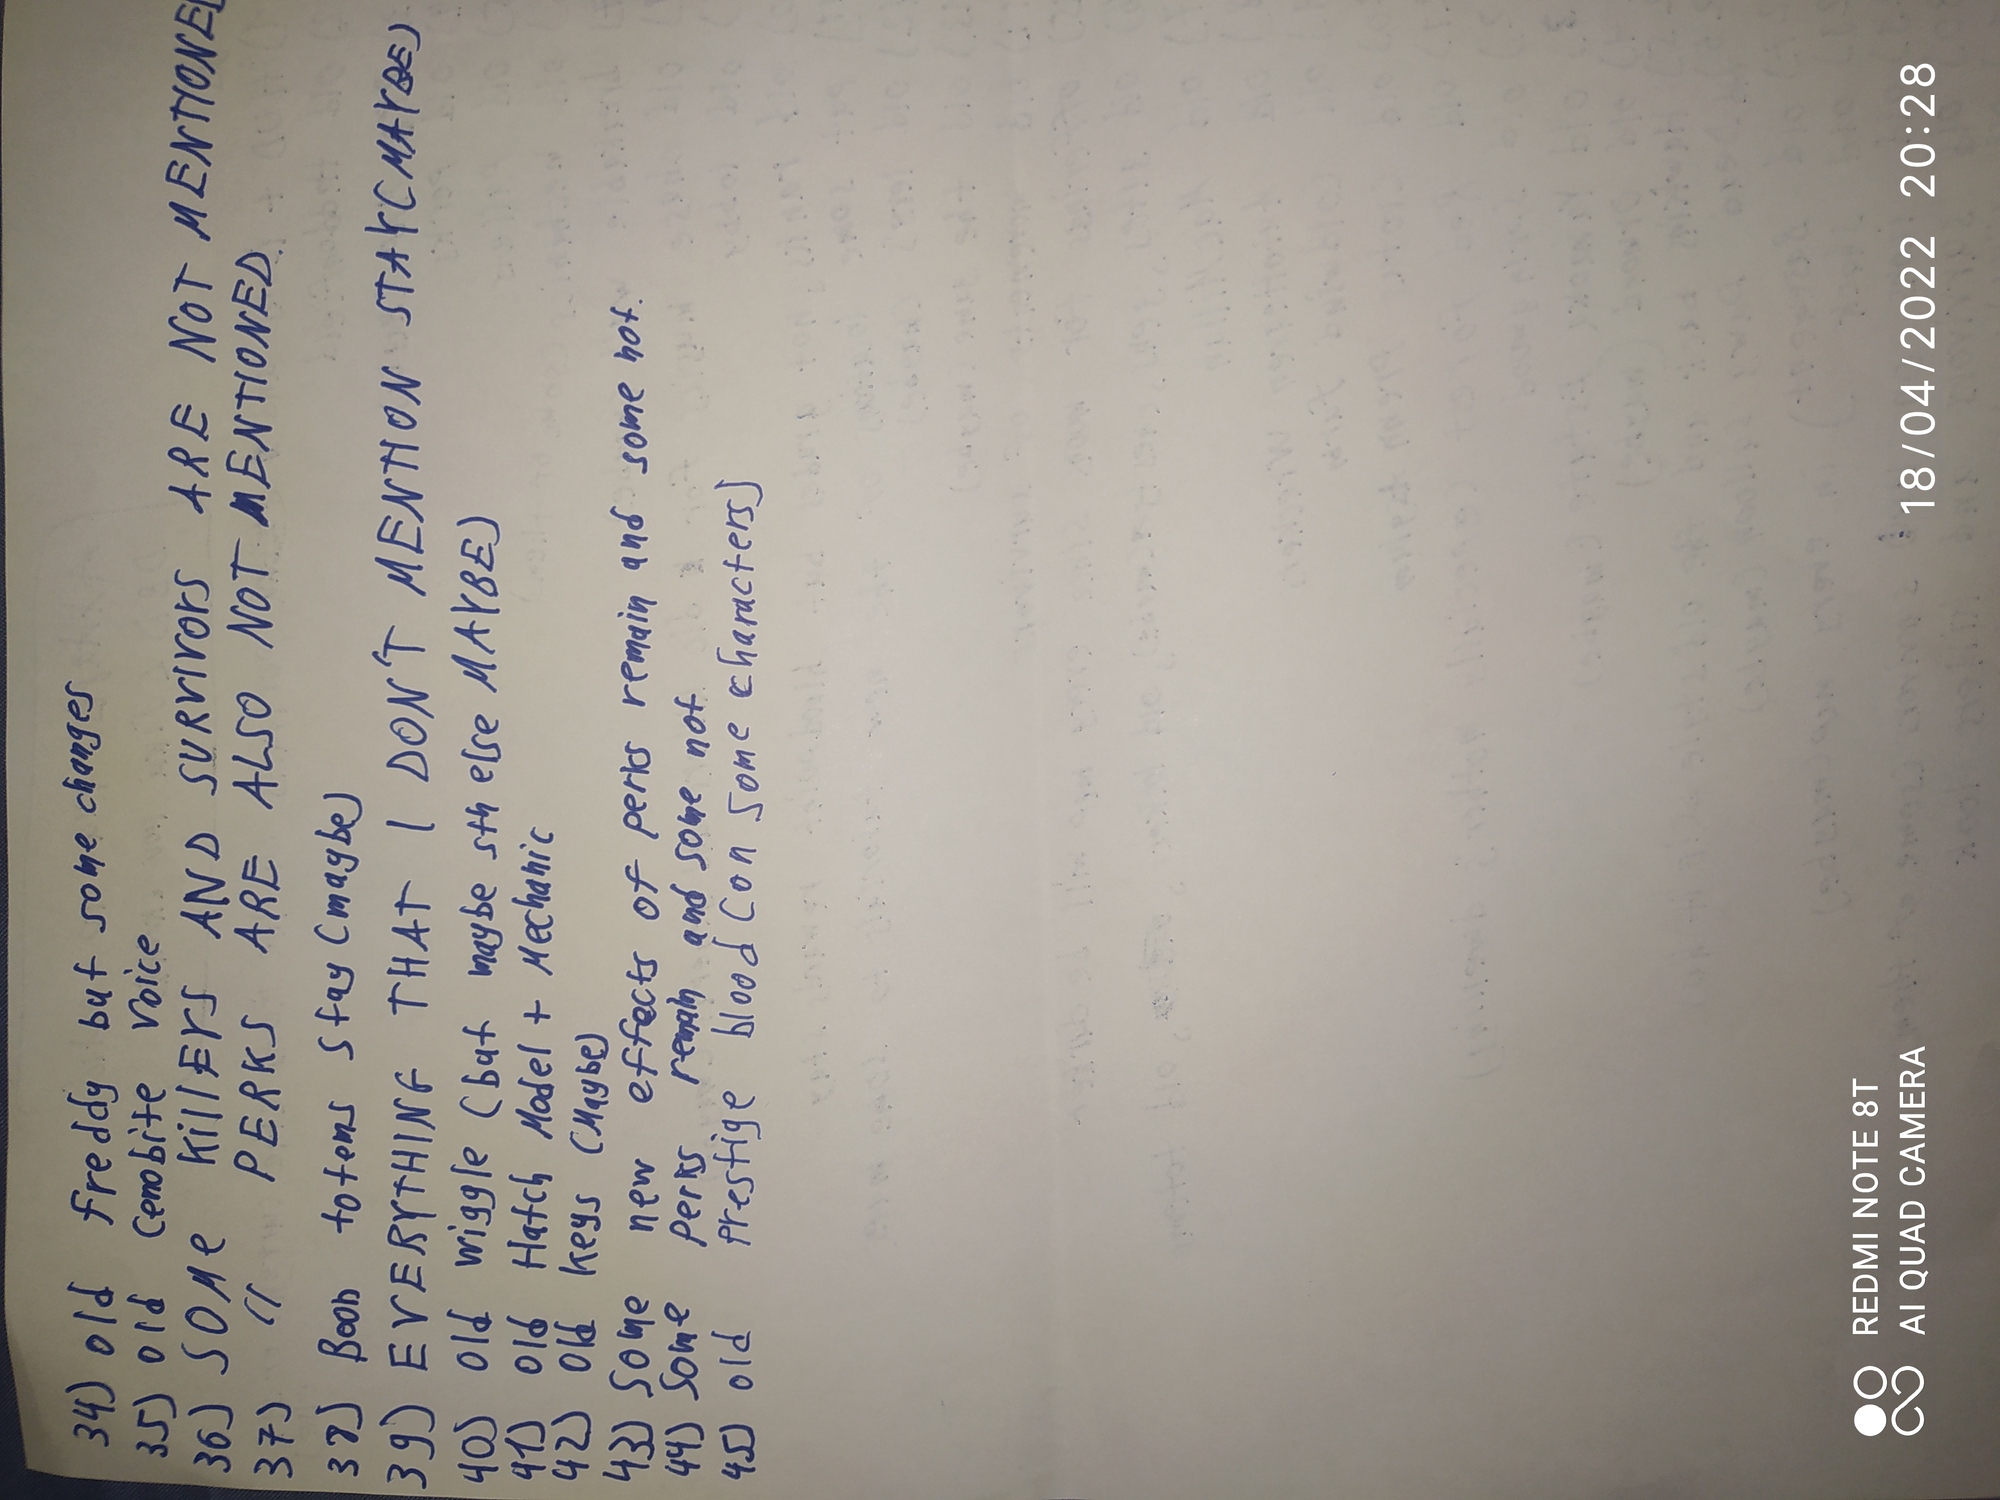 34) old Freddy but some changes
35) old cenobite voice
36) SOME KillERS AND SURVIVORS ARE NOT MENTIONED
37) // PERKS ARE ALSO NOT MENTIONED
38) Boon totems stay (maybe)
39) EVERYTHING THAT I DON'T MENTION STAY(MAYBE)
40) old wriggle (but maybe sth else MAYBE)
41) old Hatch Model + Mechanic
42) old keys (Maybe)
43) Some new effects of perks remain and some not.
44) Some perks remain and some not
45) old prestige blood (on some characters)
REDMI NOTE 8T
AI QUAD CAMERA
18/04/2022 20:28